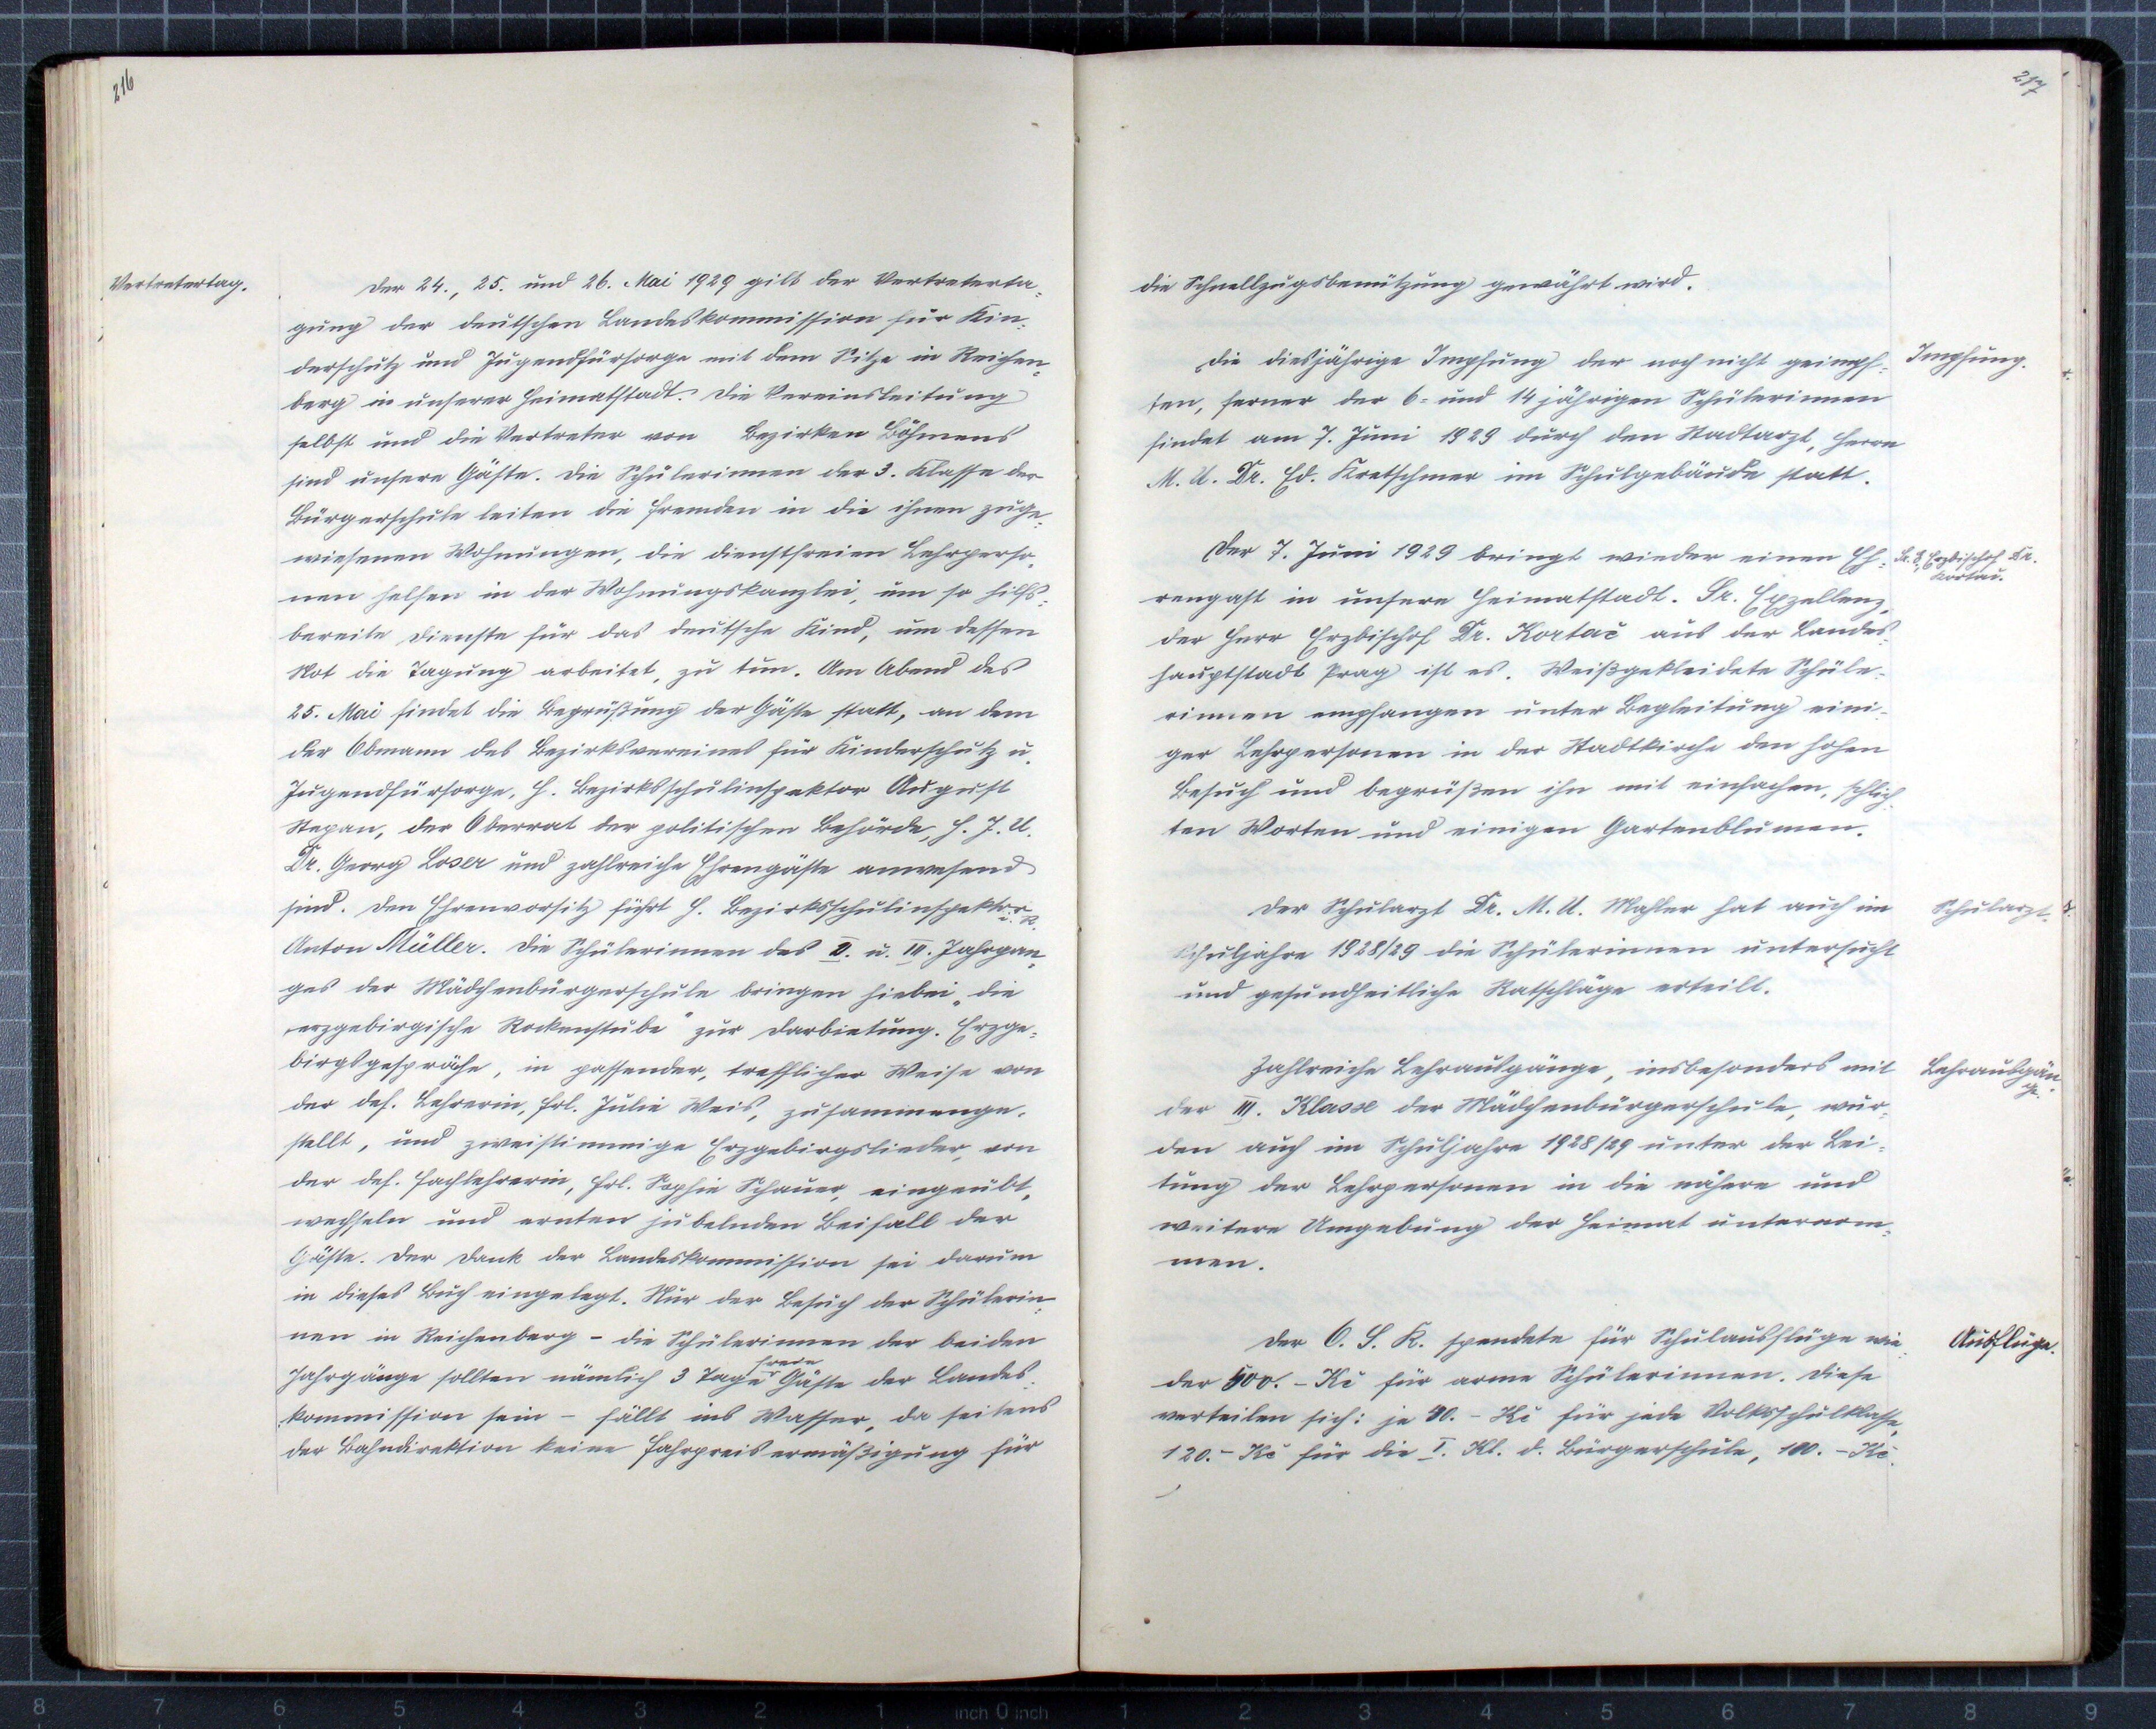 216
Vertretertag.
Der 24., 25. und 26. Mai 1929 gilt der Vertreterta-
gung der deutschen Landeskommission für Kin-
derschutz und Jugendfürsorge mit dem Sitze in Reichen-
berg in unserer Heimatstadt. Die Vereinsleitung
selbst und die Vertreter von Bezirken Böhmens
sind unsere Gäste. Die Schülerinnen der 3. Klasse der
Bürgerschule leiten die Fremden in die ihnen zuge-
wiesenen Wohnungen, die dienstfreien Lehrperso-
nen helfen in der Wohnungskanzlei, um so hilfs-
bereite Dienste für das deutsche Kind, um dessen
Not die Tagung arbeitet, zu tun. Am Abend des
25. Mai findet die Begrüßung der Gäste statt, an dem
der Obmann des Bezirksvereines für Kinderschutz u.
Jugendfürsorge, H. Bezirksschulinspektor August
Stepan, der Oberrat der politischen Behörde, H. J. U.
Dr. Georg Loser und zahlreiche Ehrengäste anwesend
sind. Den Ehrenvorsitz führt H. Bezirksschulinspektor i. R.
Anton Müller. Die Schülerinnen des II. u. III. Jahrgan-
ges der Mädchenbürgerschule bringen hiebei „die
erzgebirgische Rockenstube" zur Darbietung. Erzge-
birgsgespräche, in passender, trefflicher Weise von
der def. Lehrerin, Frl. Julie Weis, zusammenge-
stellt, und zweistimmige Erzgebirgslieder, von
der def. Fachlehrerin, Frl. Sophie Schauer, eingeübt,
wechseln und ernten jubelnden Beifall der
Gäste. Der Dank der Landeskommission sei darum
in dieses Buch eingelegt. Nur der Besuch der Schülerin-
nen in Reichenberg – die Schülerinnen der beiden
Jahrgänge sollten nämlich 3 Tage freie Gäste der Landes-
kommission sein – fällt ins Wasser, da seitens
der Bahndirektion keine Fahrpreisermäßigung für
217
die Schnellzugsbenützung gewährt wird.
Die diesjährige Impfung der noch nicht geimpf-
Impfung.
ten, ferner der 6- und 14 jährigen Schülerinnen
findet am 7. Juni 1929 durch den Stadtarzt, Herrn
M. U. Dr. Ed. Kretschmer im Schulgebäude statt.
Der 7. Juni 1929 bringt wieder einen Eh-
Sr. E. Erzbischof Dr.
Kortač.
rengast in unsere Heimatstadt. Sr. Exzellenz,
der Herr Erzbischof Dr. Kortač aus der Landes-
hauptstadt Prag ist es. Weißgekleidete Schüle-
rinnen empfangen unter Begleitung eini-
ger Lehrpersonen in der Stadtkirche den hohen
Besuch und begrüßen ihn mit einfachen, schlich-
ten Worten und einigen Gartenblumen.
Der Schularzt Dr. M. U. Mahler hat auch im
Schularzt.
Schuljahre 1928/29 die Schülerinnen untersucht
und gesundheitliche Ratschläge erteilt.
Zahlreiche Lehrausgänge, insbesonders mit
Lehrausgän-
ge.
der III. Klasse der Mädchenbürgerschule, wur-
den auch im Schuljahre 1928/29 unter der Lei-
tung der Lehrpersonen in die nähere und
weitere Umgebung der Heimat unternom-
men.
Der O. S. R. spendete für Schulausflüge wie-
Ausflüge.
der 500.- Kč für arme Schülerinnen. Diese
verteilen sich: je 40.- Kč für jede Volksschulklasse,
120.- Kč für die I. Kl. d. Bürgerschule, 100.- Kč